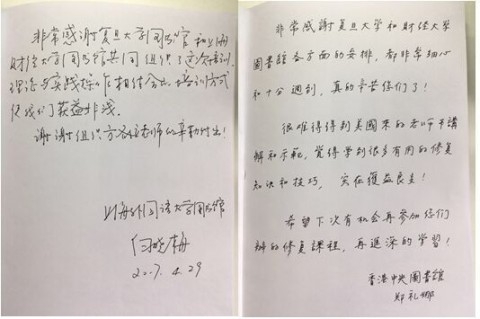 非常感谢复旦大学图书馆和上海
财经大学图书馆共同组织了这次培训,
理论与实践操作相结合的培训方式
使我们获益非浅。
谢谢组织方各位老师的辛勤付出!
上海外国语大学图书馆
2017.4.29
非常感謝复旦大学和财经大学
圖書館各方面的安排,都非常細心
和十分週到,真的辛苦您们了!
很难得得到美國來的老师书講
解和示範,覺得学到很多有用的修复
知识和技巧,实在獲益良多!
希望下次有機会再參加您们
辦的修复課程,再進深的学習!
香港中央圖書館
郑礼娜